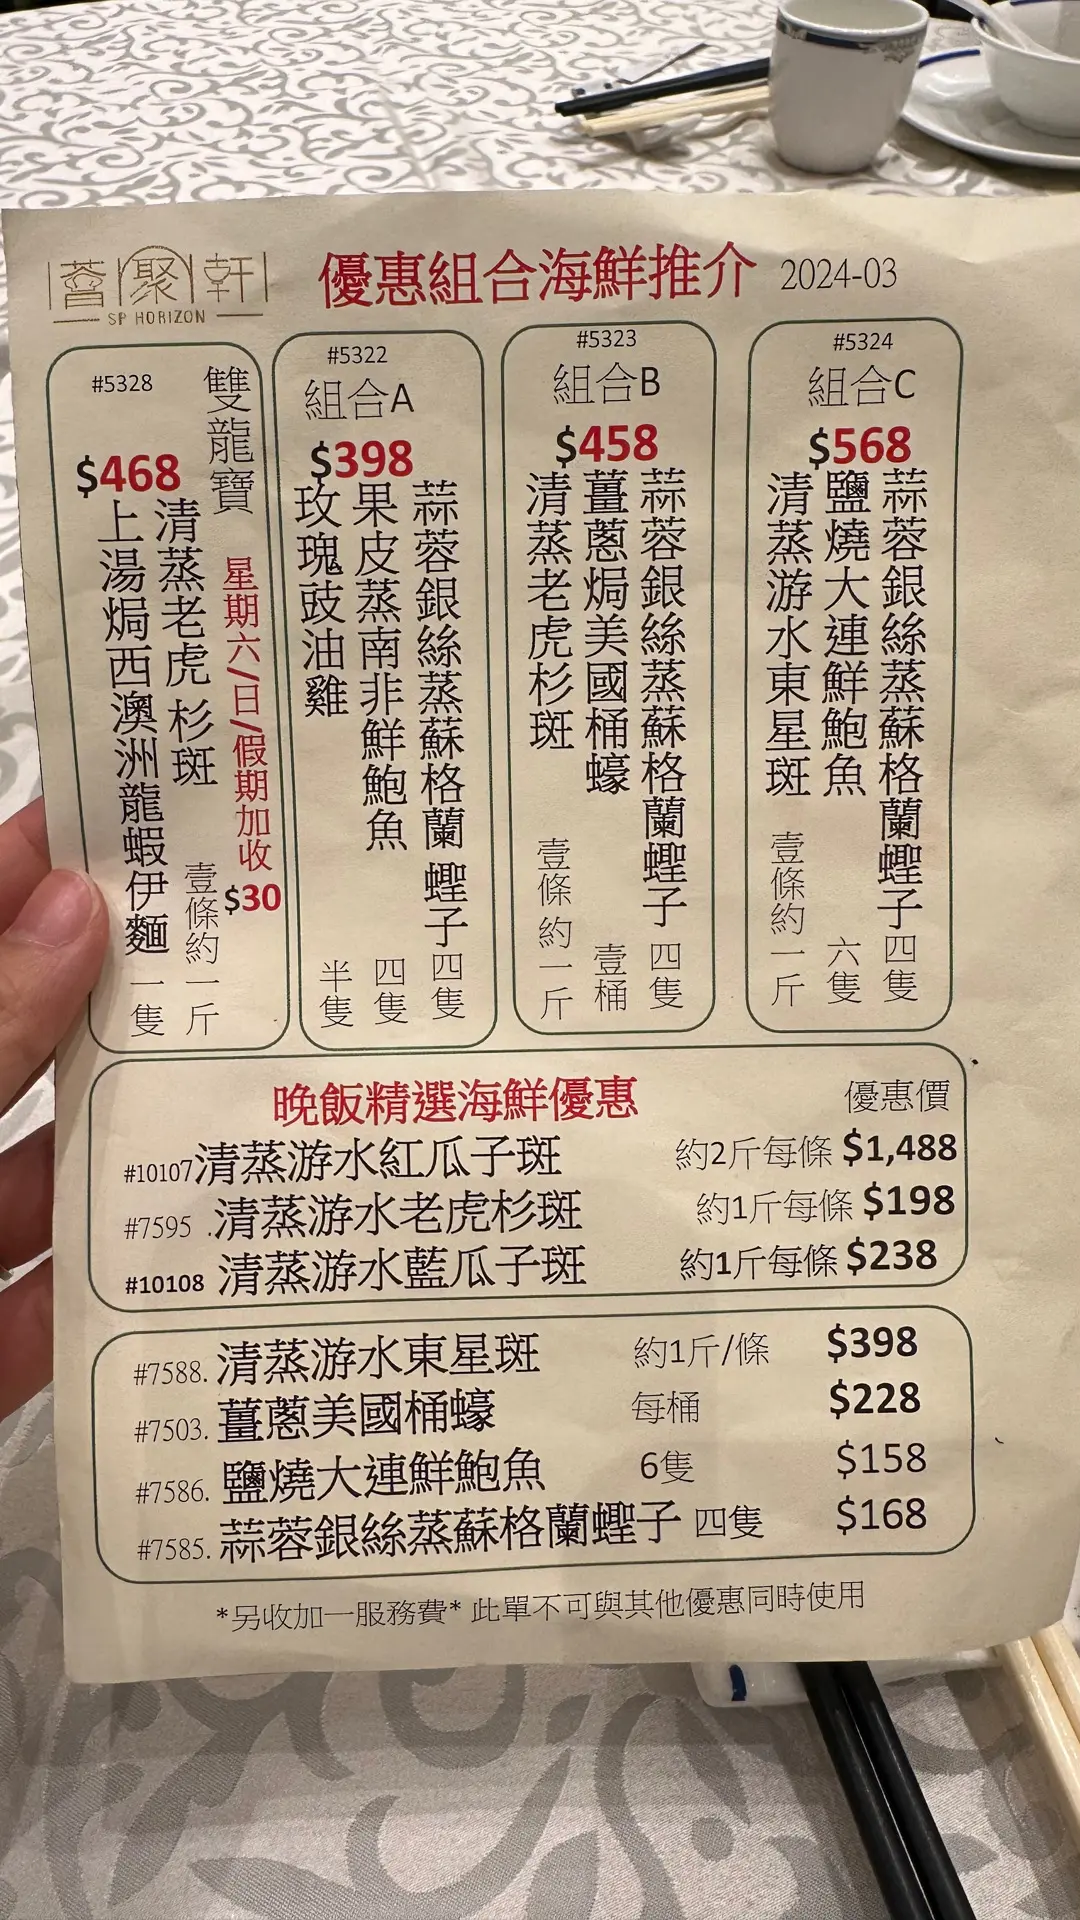 薈聚軒
SP HORIZON
優惠組合海鮮推介 2024-03
#5328
雙龍寶
$468
星期六/日/假期加收$30
清蒸老虎杉斑 壹條約一斤
上湯焗西澳洲龍蝦伊麵 一隻
#5322
組合A
$398
蒜蓉銀絲蒸蘇格蘭蟶子 四隻
果皮蒸南非鮮鮑魚 四隻
玫瑰豉油雞 半隻
#5323
組合B
$458
蒜蓉銀絲蒸蘇格蘭蟶子 四隻
薑蔥焗美國桶蠔 壹桶
清蒸老虎杉斑 壹條約一斤
#5324
組合C
$568
蒜蓉銀絲蒸蘇格蘭蟶子 四隻
鹽燒大連鮮鮑魚 六隻
清蒸游水東星斑 壹條約一斤
晚飯精選海鮮優惠 優惠價
#10107清蒸游水紅瓜子斑 約2斤每條 $1,488
#7595 .清蒸游水老虎杉斑 約1斤每條 $198
#10108 清蒸游水藍瓜子斑 約1斤每條 $238
#7588. 清蒸游水東星斑 約1斤/條 $398
#7503. 薑蔥美國桶蠔 每桶 $228
#7586. 鹽燒大連鮮鮑魚 6隻 $158
#7585. 蒜蓉銀絲蒸蘇格蘭蟶子 四隻 $168
*另收加一服務費* 此單不可與其他優惠同時使用